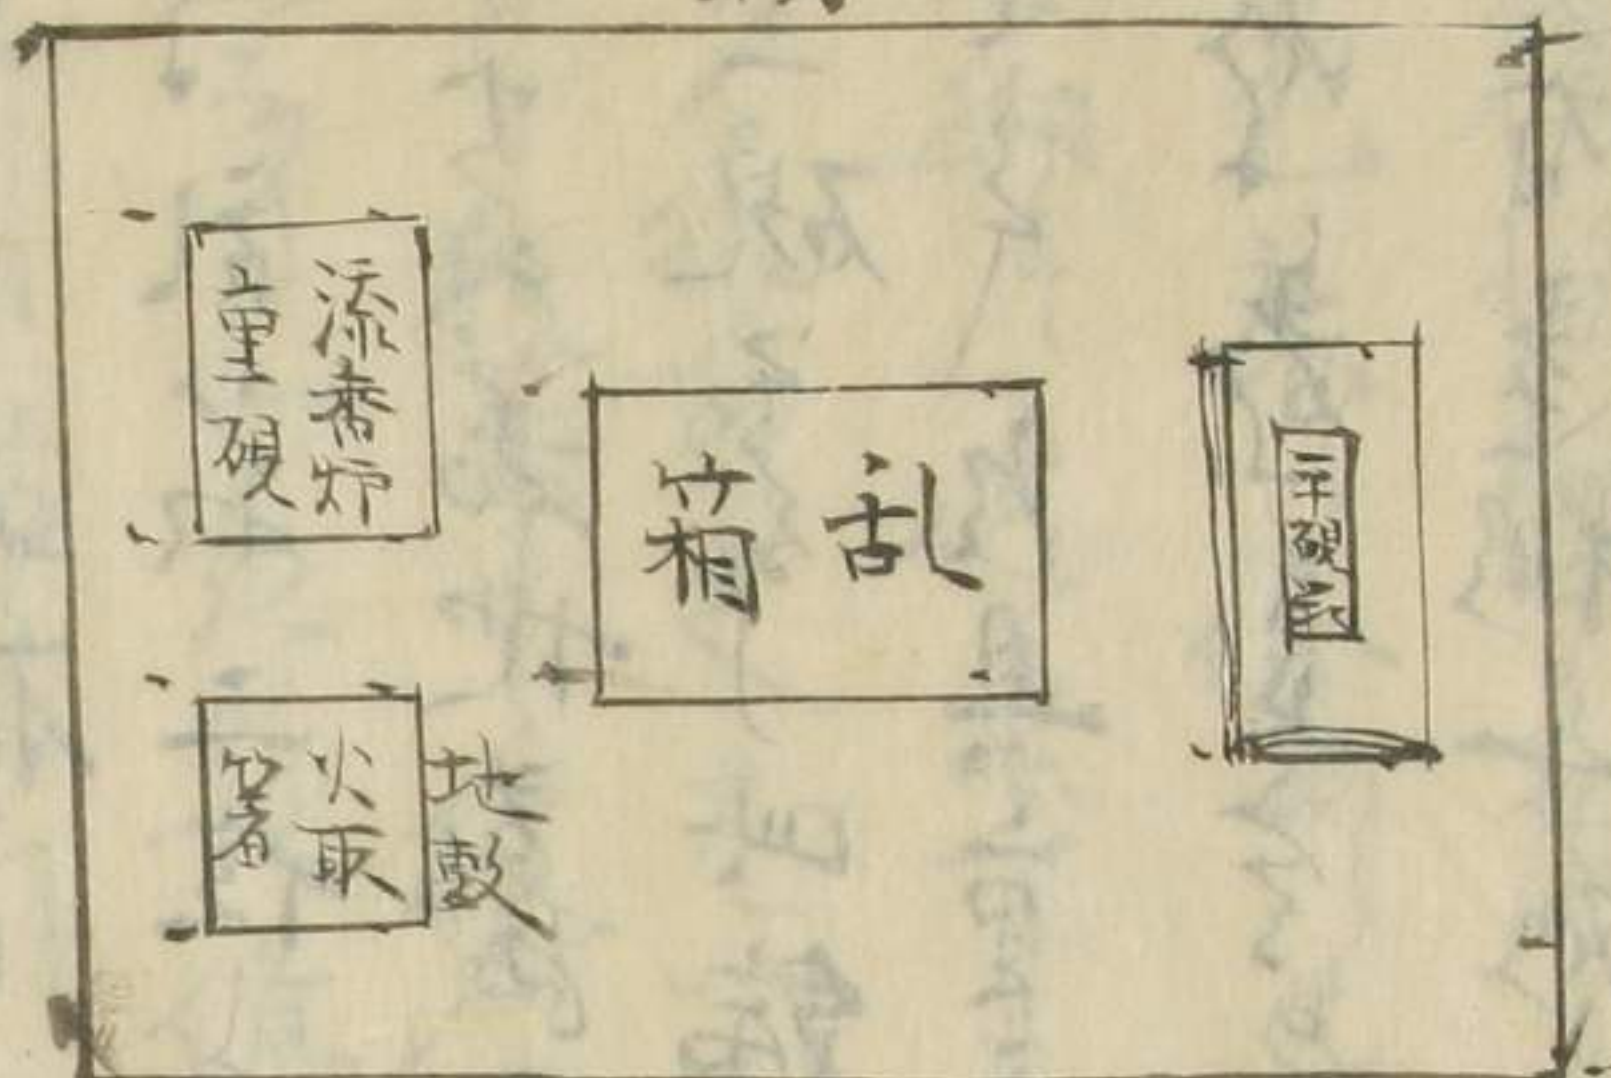 乱
箱
添香炉
重硯
地敷
火取
箸